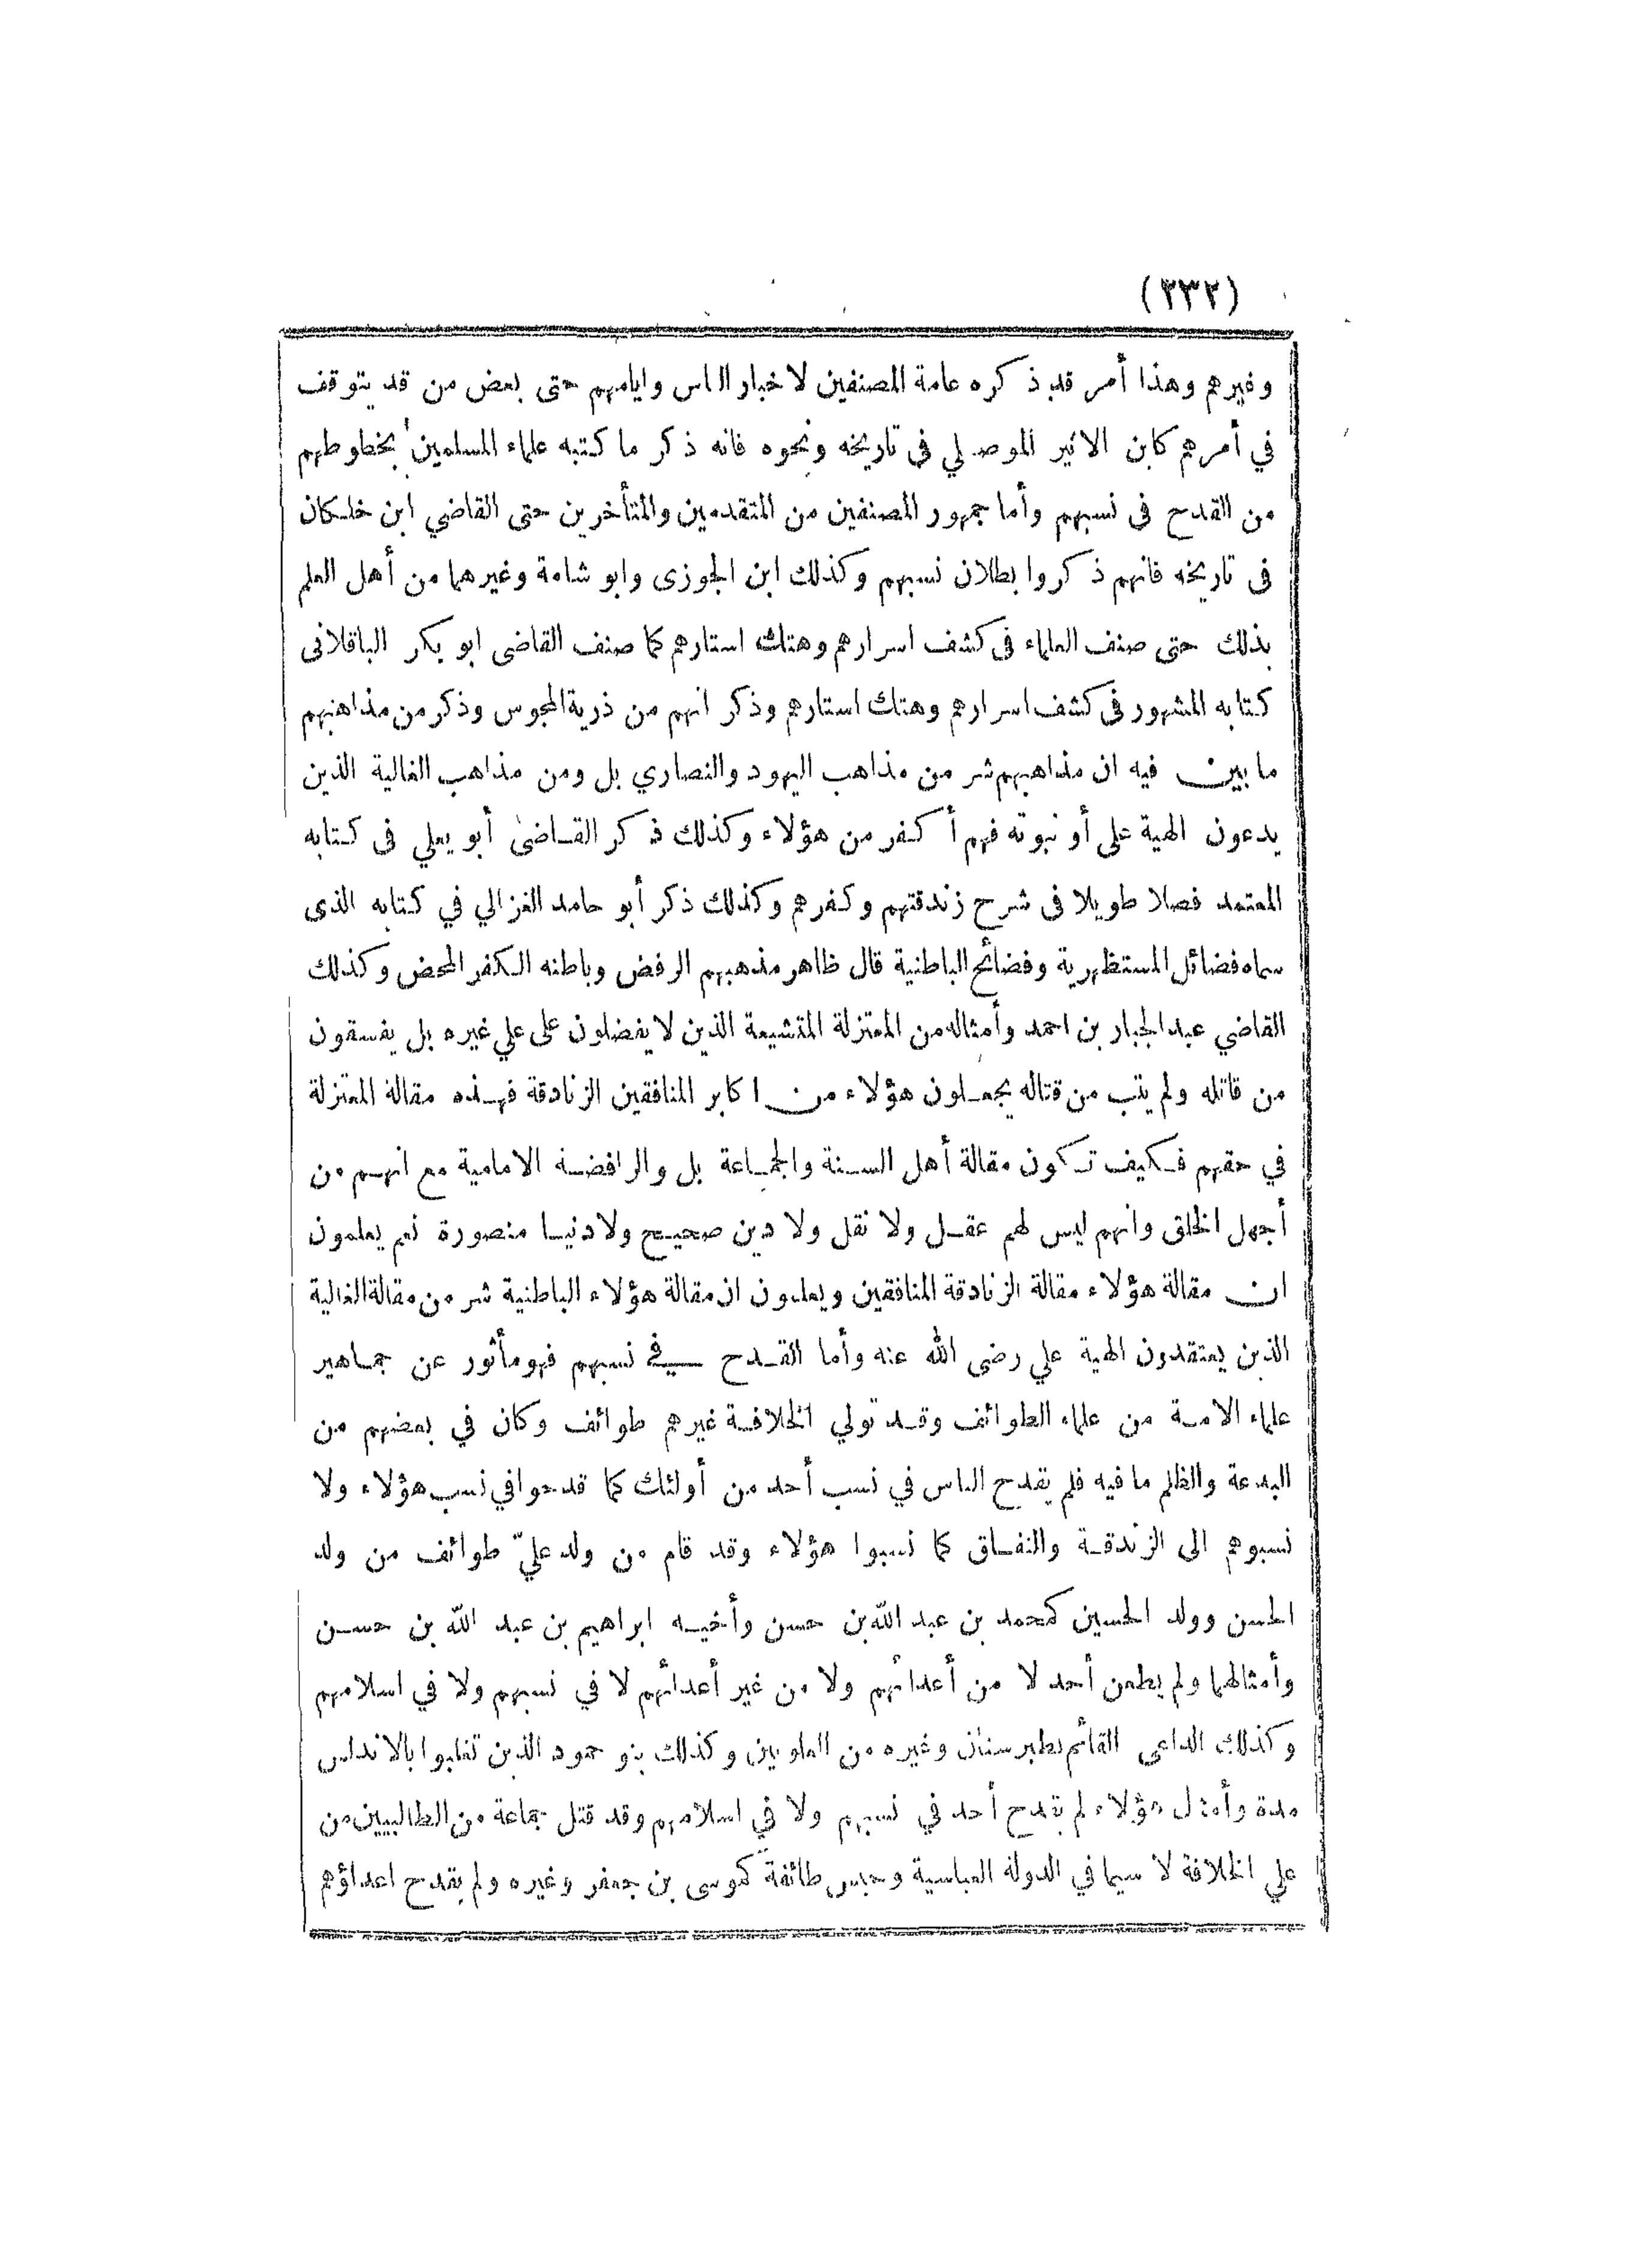 (٣٣٢)
وغيرهم وهذا أمر قد ذكره عامة المصنفين لاخبار الناس وايامهم حتى بعض من قد يتوقف
في أمرهم كابن الاثير الموصلي فى تاريخه ونحوه فانه ذكر ما كتبه علماء المسلمين بخطوطهم
من القدح فى نسبهم وأما جمهور المصنفين من المتقدمين والمتأخرين حتى القاضي ابن خلكان
فى تاريخه فانهم ذكروا بطلان نسبهم وكذلك ابن الجوزى وابو شامة وغيرهما من أهل العلم
بذلك حتى صنف العلماء فى كشف اسرارهم وهتك استارهم كما صنف القاضى ابو بكر الباقلانى
كتابه المشهور فى كشف اسرارهم وهتك استارهم وذكر انهم من ذرية المجوس وذكر من مذاهبهم
ما بين فيه ان مذاهبهم شر من مذاهب اليهود والنصاري بل ومن مذاهب الغالية الذين
يدعون الهية على أو نبوته فهم أكفر من هؤلاء وكذلك ذكر القاضى أبو يعلي فى كتابه
المعتمد فصلا طويلا فى شرح زندقتهم وكفرهم وكذلك ذكر أبو حامد الغزالي في كتابه الذى
سماه فضائل المستظهرية وفضائح الباطنية قال ظاهر مذهبهم الرفض وباطنه الكفر المحض وكذلك
القاضي عبد الجبار بن احمد وأمثاله من المعتزلة المتشيعة الذين لا يفضلون على علي غيره بل يفسقون
من قاتله ولم يتب من قتاله يجعلون هؤلاء من اكابر المنافقين الزنادقة فهذه مقالة المعتزلة
في حقهم فكيف تكون مقالة أهل السنة والجماعة بل والرافضة الامامية مع انهم من
أجهل الخلق وانهم ليس لهم عقل ولا نقل ولا دين صحيح ولا دنيا منصورة نعم يعلمون
ان مقالة هؤلاء مقالة الزنادقة المنافقين ويعلمون ان مقالة هؤلاء الباطنية شر من مقالة الغالية
الذين يعتقدون الهية علي رضى الله عنه وأما القدح في نسبهم فهو مأثور عن جماهير
علماء الامة من علماء الطوائف وقد تولي الخلافة غيرهم طوائف وكان في بعضهم من
البدعة والظلم ما فيه فلم يقدح الناس في نسب أحد من أولئك كما قدحوا في نسب هؤلاء ولا
نسبوهم الى الزندقة والنفاق كما نسبوا هؤلاء وقد قام من ولد عليّ طوائف من ولد
الحسن وولد الحسين كمحمد بن عبد الله بن حسن وأخيه ابراهيم بن عبد الله بن حسن
وأمثالهما ولم يطعن أحد لا من أعدائهم ولا من غير أعدائهم لا في نسبهم ولا في اسلامهم
وكذلك الداعي القائم بطبرستان وغيره من العلويين وكذلك بنو حمود الذين تغلبوا بالاندلس
مدة وأمثال هؤلاء لم يقدح أحد في نسبهم ولا في اسلامهم وقد قتل جماعة من الطالبيين من
علي الخلافة لا سيما في الدولة العباسية وحبس طائفة كموسى بن جعفر وغيره ولم يقدح اعداؤهم